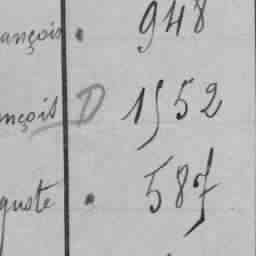 ançois . 948
nçois D 1552
guste . 587